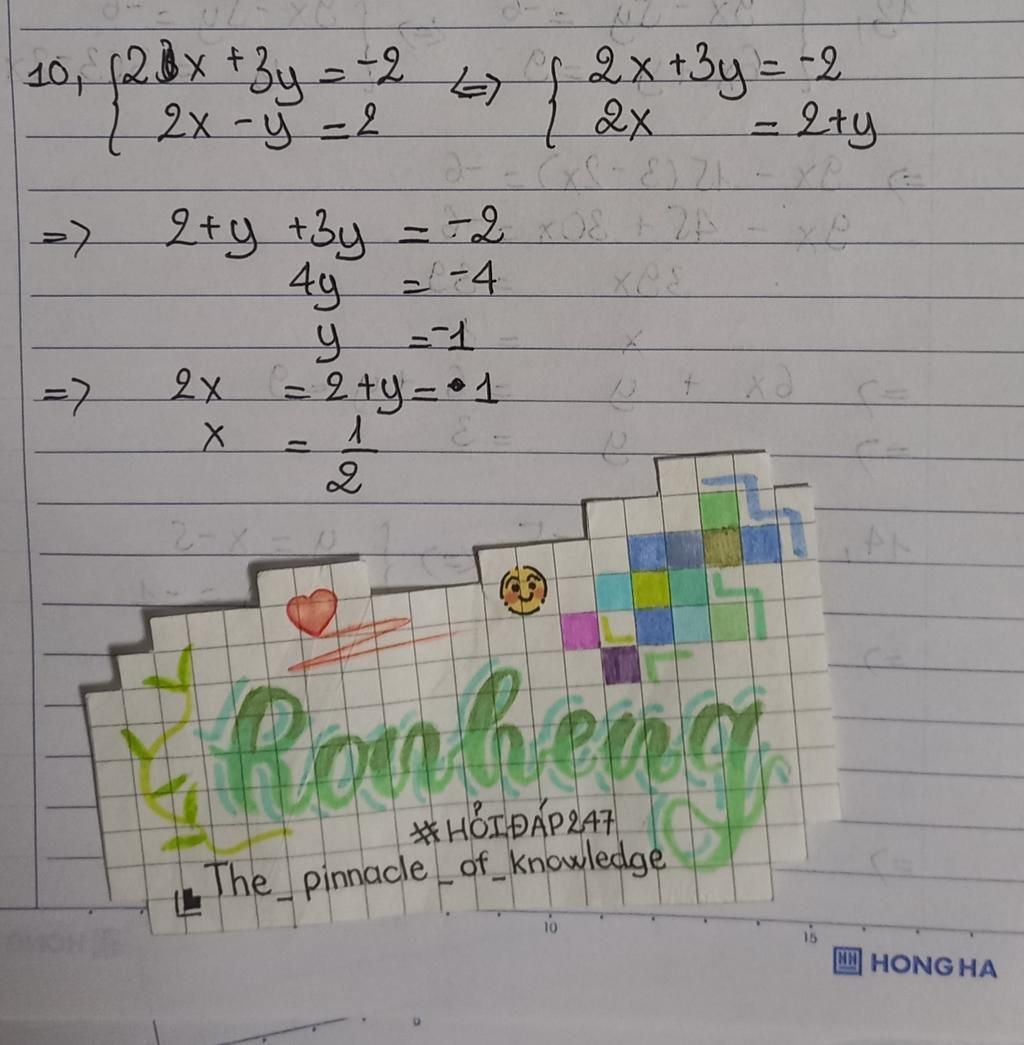 10, { 2x + 3y = -2 <=> { 2x + 3y = -2
2x - y = 2 2x = 2+y
=> 2+y +3y = -2
4y = -4
y = -1
=> 2x = 2+y = 1
x = 1/2
Ronheng
#HỎIĐÁP247
The_pinnacle_of_knowledge
10 15
HH HONG HA